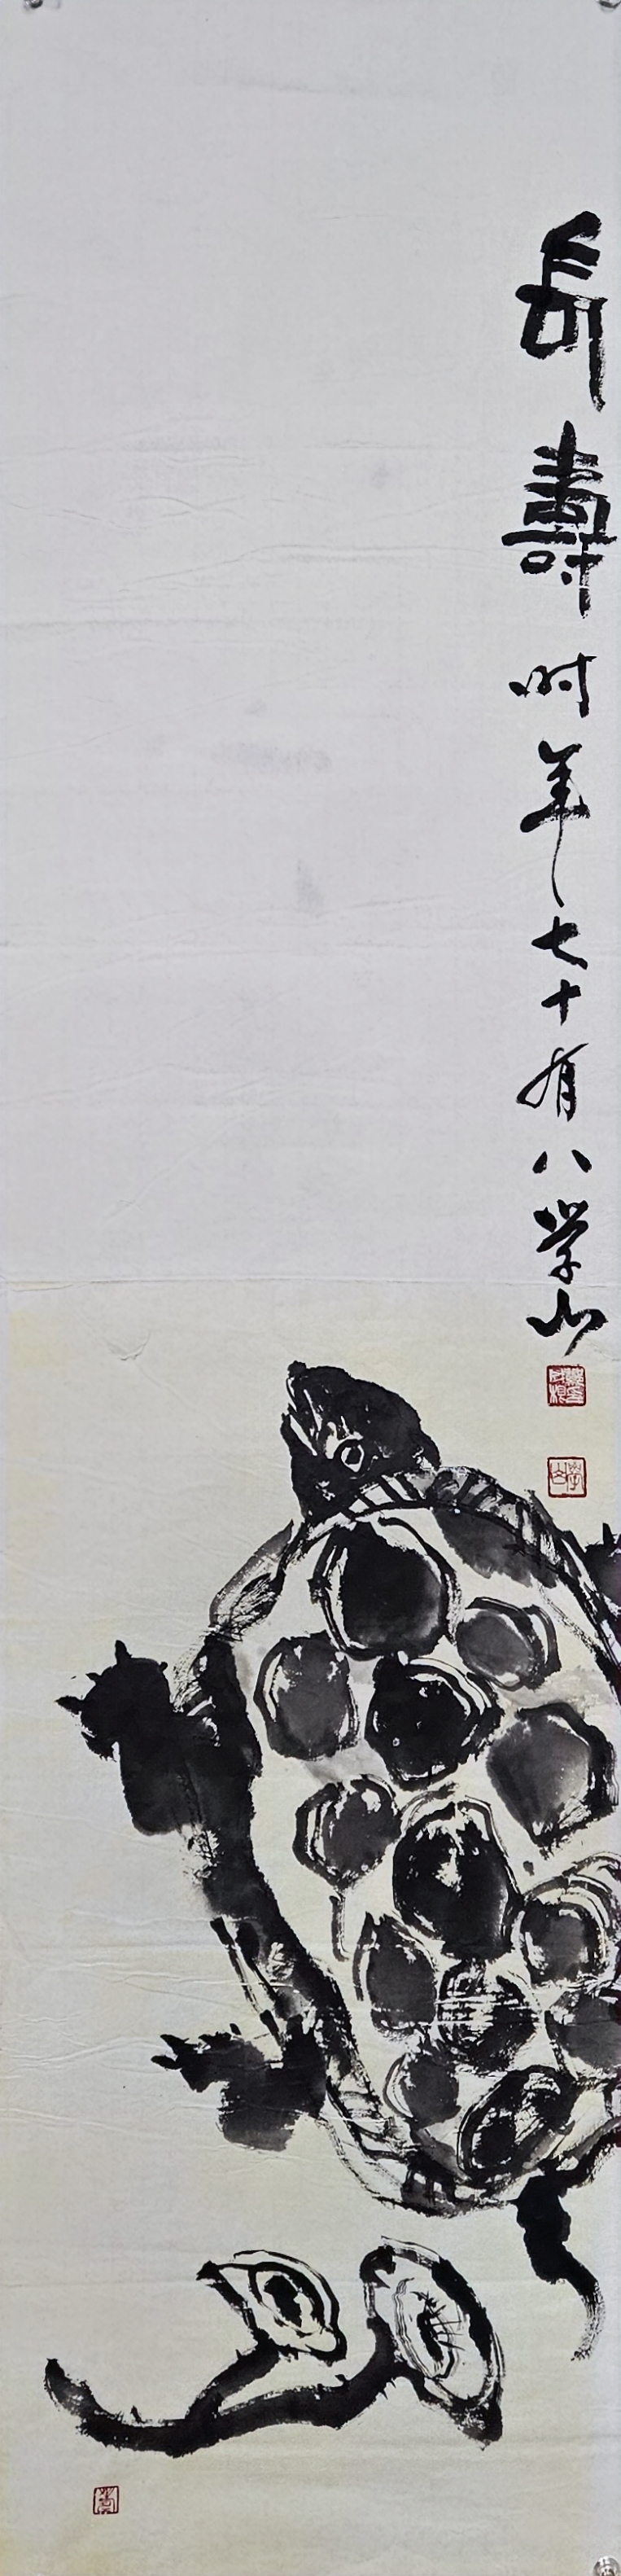 長壽时年七十有八学山